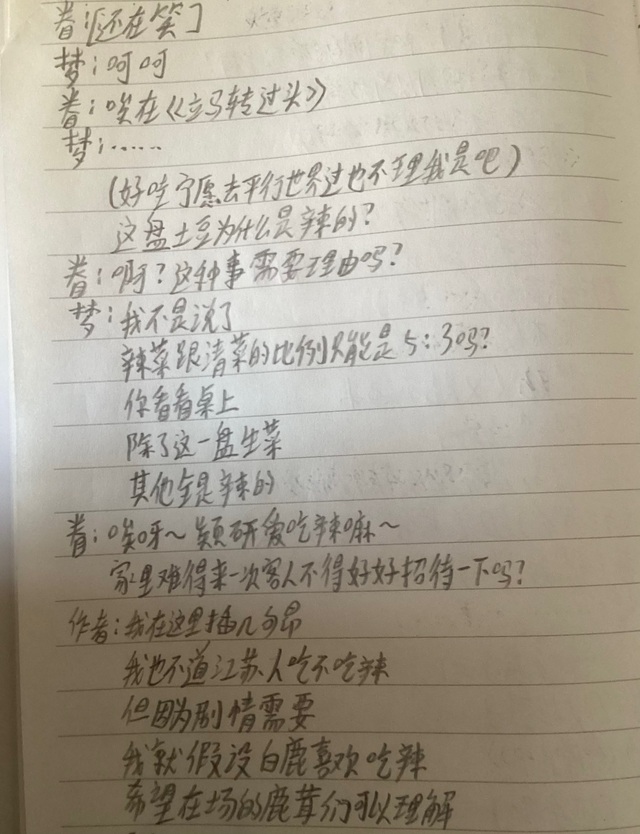 眷:[还在笑]
梦:呵呵
眷:唉在《立马转过头》
梦:……
(好哇宁愿去平行世界过也不理我是吧)
这盘土豆为什么是辣的?
眷:啊?这种事需要理由吗?
梦:我不是说了
辣菜跟清菜的比例只能是5:3吗?
你看看桌上
除了这一盘生菜
其他全是辣的
眷:唉呀~颖研爱吃辣嘛~
家里难得来一次客人不得好好招待一下吗?
作者:我在这里插几句昂
我也不道江苏人吃不吃辣
但因为剧情需要
我就假设白鹿喜欢吃辣
希望在场的鹿茸们可以理解